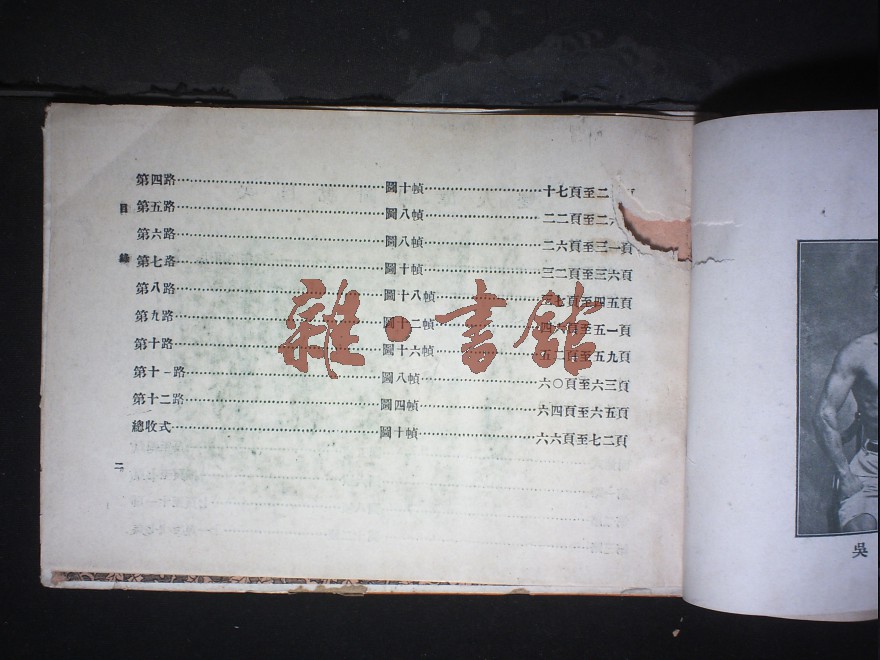 第四路……圖十幀……十七頁至二
第五路……圖八幀……二二頁至二六
第六路……圖八幀……二六頁至三一頁
第七路……圖十幀……三二頁至三六頁
第八路……圖十八幀……三七頁至四五頁
第九路……圖十二幀……四六頁至五一頁
第十路……圖十六幀……五二頁至五九頁
第十一路……圖八幀……六〇頁至六三頁
第十二路……圖四幀……六四頁至六五頁
總收式……圖十幀……六六頁至七二頁
目錄
二
雜·書館
吳